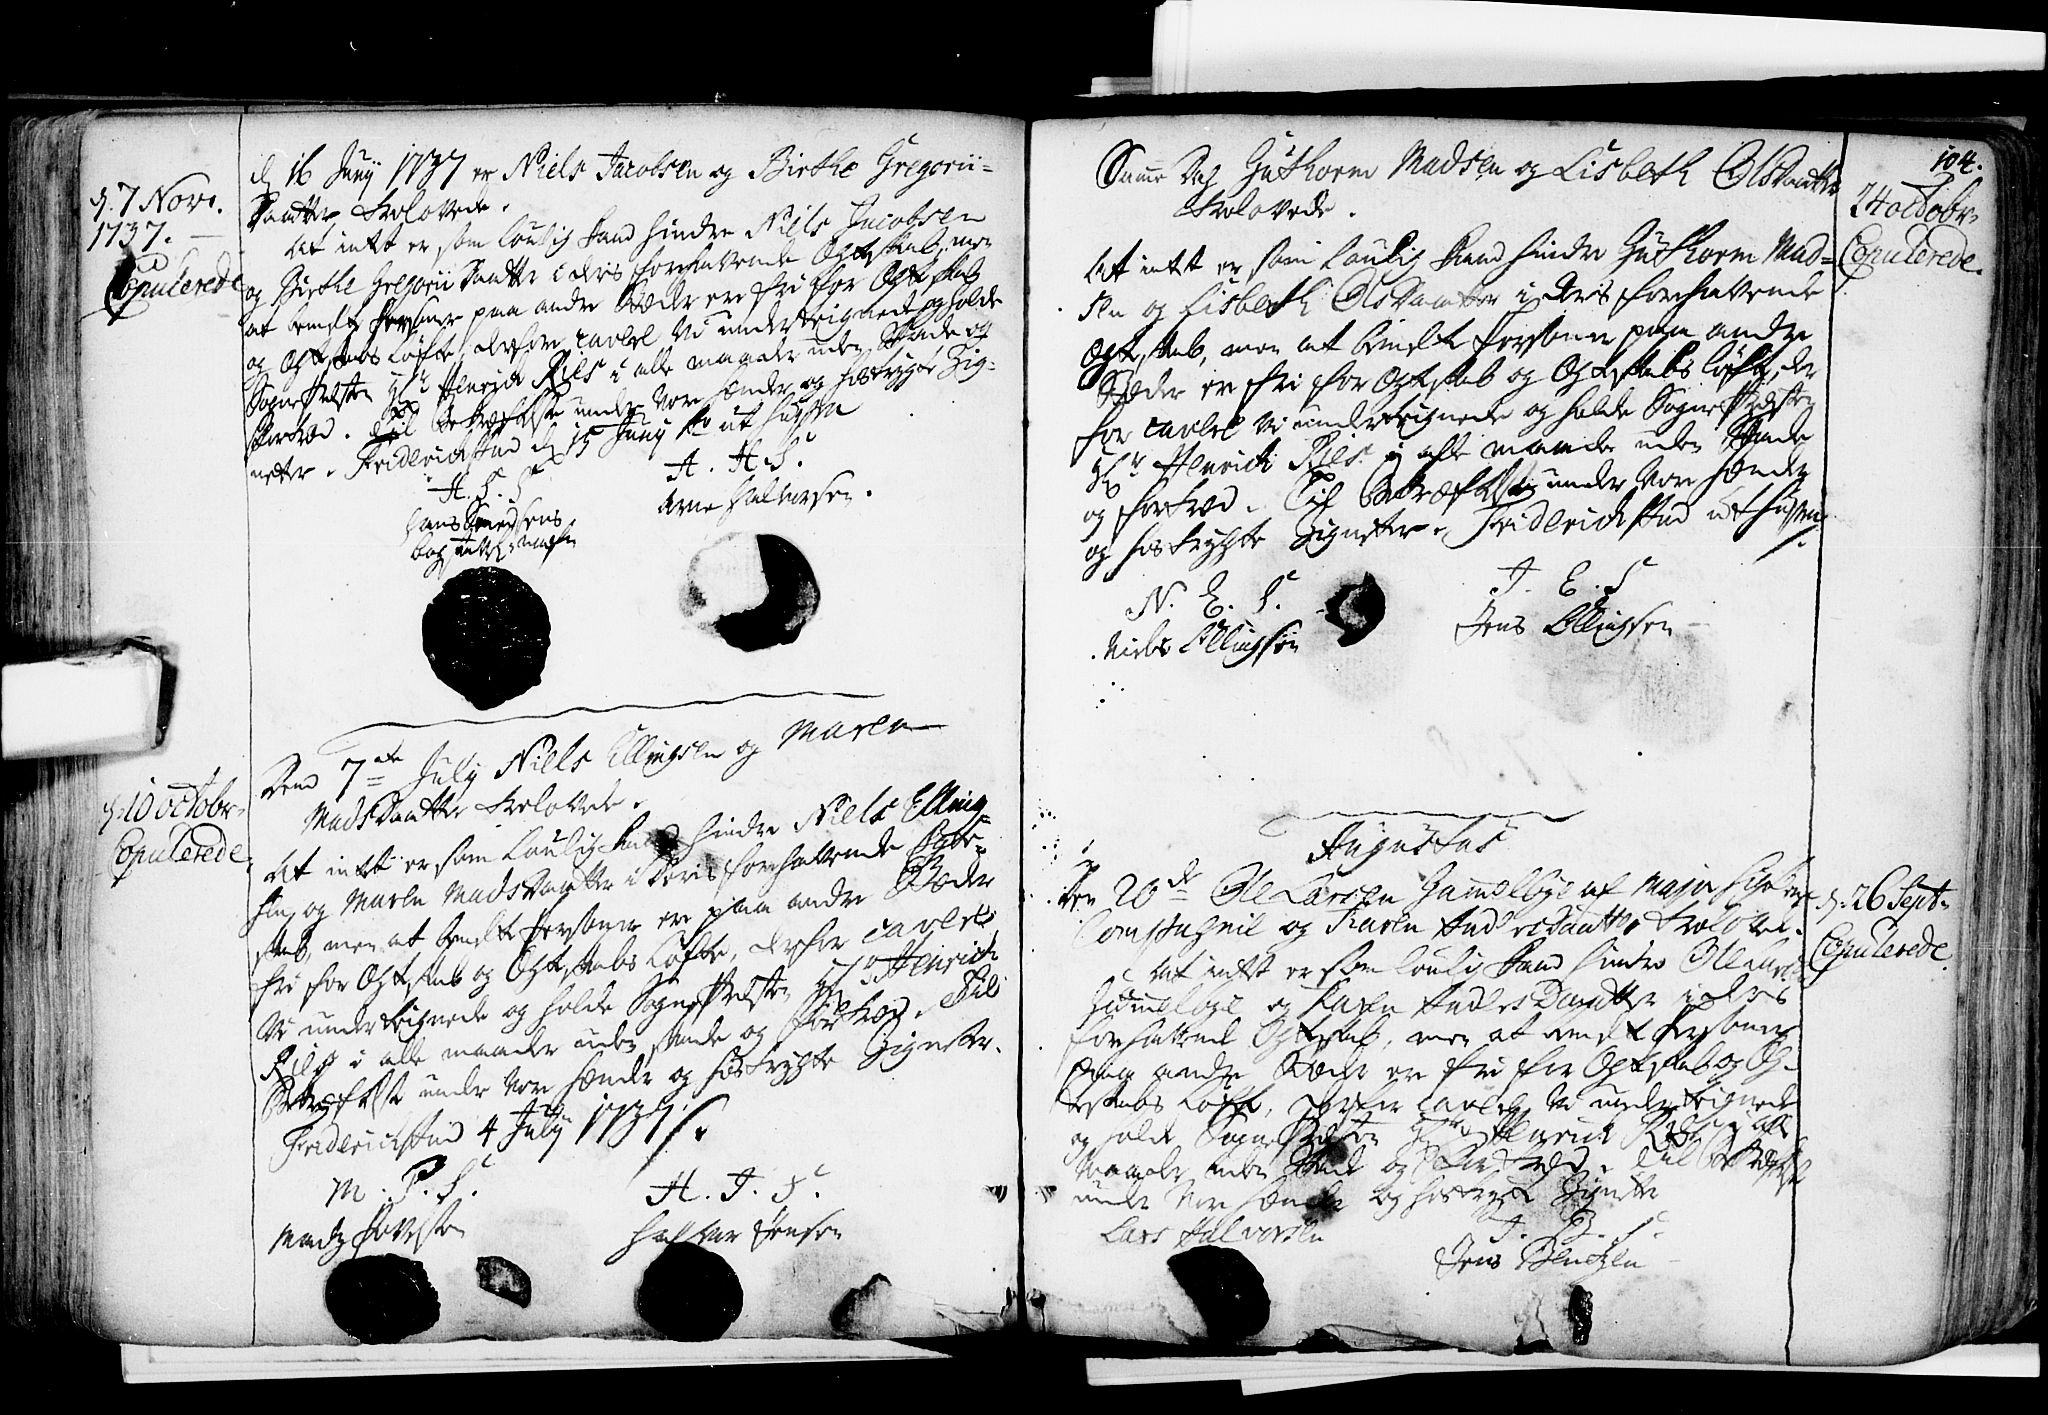 d. 7 Novr.
1737.
Copulerede
d 16 Junij 1737 er Niels Jacobsen og Birthe Gregorii-
Daatter trolovede.
At intet er som lovlig kand hindre Niels Jacobsen
og Birthe Gregorii Daatter i deris forehavende Ægteskab, men
at bemelte Persohner paa andre Stæder ere fri for Ægteskab
og Ægteskabs Løfte, derfore caverer Vi undertegnede og holde
Sogne Præsten Hr Henrich Ries i alle maader uden Skade og
fortræd. Til Bekræftelse under vore Hænder og hostrygte Zig-
neter. Friderichstad d 15 Junij Ao ut supra
H. S. S.
A. H. S.
Arne Halvorsen.
d. 10 octobr.
Copulerede
Dend 7de July Niels Ellingsen og Maren
Mads Daatter trolovede.
At intet er som lovlig kand hindre Niels Elling-
sen og Maren Mads Daatter i deris forehavende Ægte-
skab, men at bemelte Persohner ere paa andre Stæder
fri for Ægteskab og Ægteskabs Løfte, derfor caverer
Vi undertegnede og holde Sogne Præsten Hr Henrich
Ries i alle maader uden skade og fortræd. Til
Bekræftelse under vore Hænder og hostrygte Zigneter.
Friderichstad 4 July 1737.
M. P. S.
H. J. S.
Halvor Jensen
104.
Samme Dag Guthorm Madsen og Lisbeth Olsdaatter
trolovede.
24 octobr.
Copulerede.
At intet er som lovlig kand hindre Guthorm Mad-
sen og Lisbeth Olsdaatter i deris forehavende
Ægteskab, men at bemelte Persohner paa andre
Stæder er fri for Ægteskab og Ægteskabs løfte, der
for caverer Vi undertegnede og holde Sogne Præsten
Hr Henrich Ries i alle maader uden Skade
og fortræd. Til Bekræftelse under vore hænder
og hostrygte Zigneter. Friderichstad ut supra.
N. E. S.
J. E. S
Niels Ellingsen
Jens Ellingsen
Augustus
Den 20de Ole Larsen Gammeløye af Major
Compagnie og Karen Anders Daatter trolovede.
d. 26 Sept.
Copulerede
At intet er som lovlig kand hindre Ole Larsen
Gammeløye og Karen Anders Daatter i deris
forehavende Ægteskab, men at bemelte Persohner
paa andre Stæder ere fri for Ægteskab og Æg-
teskabs Løfte, derfor caverer Vi undertegnede
og holde Sogne Præsten Hr Henrich Ries i alle
maader uden Skade og fortræd. Til Bekræftelse
under vore Hænder og hostrygte Zigneter
Lars Halvorsen
J. B. S.
Jens Bentzen